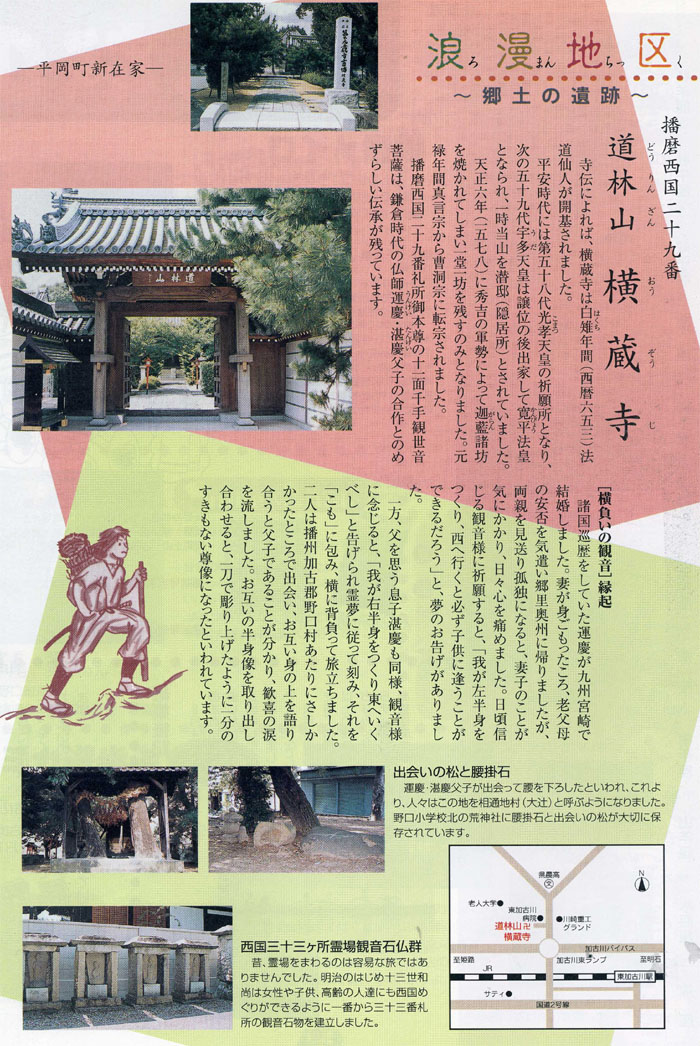 浪漫地区
ろ まん ちっ く
～郷土の遺跡～
―平岡町新在家―
播磨西国二十九番
道林山 横蔵寺
どう りん ざん おう ぞう じ
寺伝によれば、横蔵寺は白雉年間(西暦六五三)法
はくち
道仙人が開基されました。
平安時代には第五十八代光孝天皇の祈願所となり、
こうこう
次の五十九代宇多天皇は譲位の後出家して寛平法皇
うだ かんぴょう
となられ、一時当山を潜邸(隠居所)とされていました。
天正六年(一五七八)に秀吉の軍勢によって迦藍諸坊
がらん
を焼かれてしまい一堂一坊を残すのみとなりました。元
禄年間真言宗から曹洞宗に転宗されました。
播磨西国二十九番礼所御本尊の十一面千手観世音
菩薩は、鎌倉時代の仏師運慶・湛慶父子の合作とのめ
うんけい たんけい
ずらしい伝承が残っています。
道林山
[横負いの観音]縁起
諸国巡歴をしていた運慶が九州宮崎で
結婚しました。妻が身ごもったころ、老父母
の安否を気遣い郷里奥州に帰りましたが、
両親を見送り孤独になると、妻子のことが
気にかかり、日々心を痛めました。日頃信
じる観音様に祈願すると、「我が左半身を
つくり、西へ行くと必ず子供に逢うことが
できるだろう」と、夢のお告げがありまし
た。
一方、父を思う息子湛慶も同様、観音様
に念じると、「我が右半身をつくり東へいく
べし」と告げられ霊夢に従って刻み、それを
「こも」に包み、横に背負って旅立ちました。
二人は播州加古郡野口村あたりにさしか
かったところで出会い、お互い身の上を語り
合うと父子であることが分かり、歓喜の涙
を流しました。お互いの半身像を取り出し
合わせると、一刀で彫り上げたように一分の
すきもない尊像になったといわれています。
出会いの松と腰掛石
運慶・湛慶父子が出会って腰を下ろしたといわれ、これよ
り、人々はこの地を相逢地村(大辻)と呼ぶようになりました。
野口小学校北の荒神社に腰掛石と出会いの松が大切に保
存されています。
西国三十三ヶ所霊場観音石仏群
昔、霊場をまわるのは容易な旅ではあ
りませんでした。明治のはじめ十三世和
尚は女性や子供、高齢の人達にも西国め
ぐりができるように一番から三十三番札
所の観音石物を建立しました。
県農高
文
N
老人大学
東加古川
病院
川崎重工
グランド
道林山卍
横蔵寺
加古川バイパス
至姫路
加古川東ランプ
至明石
JR
東加古川駅
サティ
国道2号線